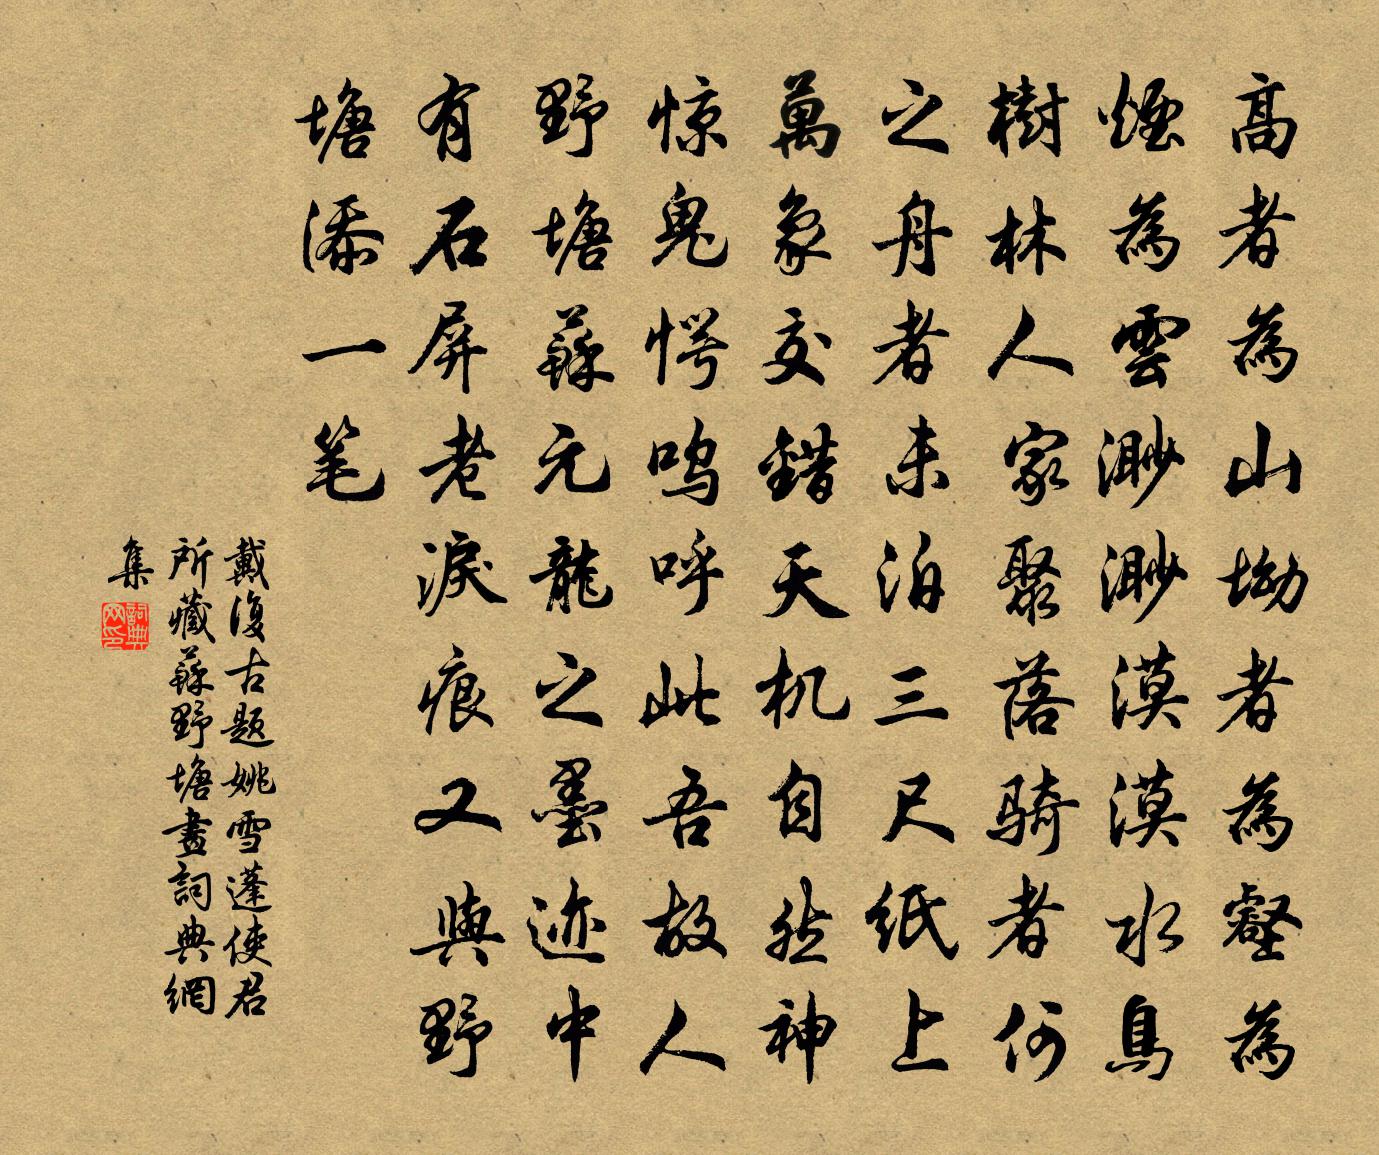 高者為山坳者為壑為
煙為雲渺渺漠漠水鳥
樹林人家聚落骑者何
之舟者未泊三尺纸上
萬象交錯天机自然神
惊鬼愕呜呼此吾故人
野塘蘇元龍之墨迹中
有石屏老淚痕又與野
塘添一笔
戴復古題姚雪蓬使君
所藏蘇野塘畫詞典網
集
詞典网印